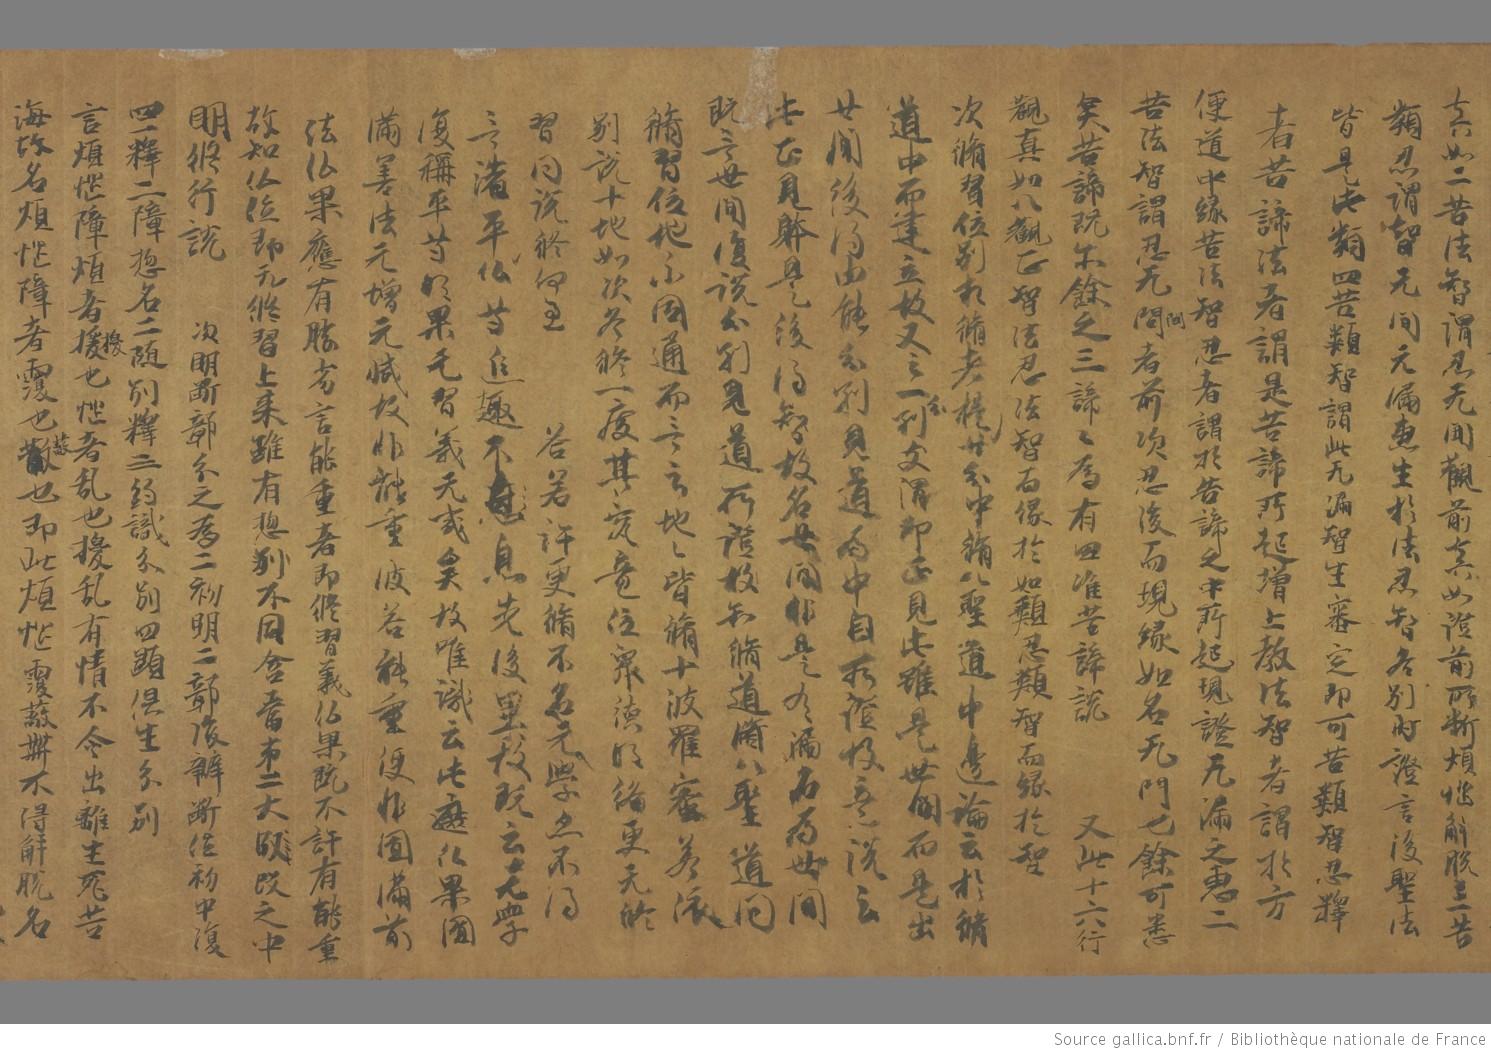 真如二苦法智謂忍无間觀前真如證前所斷煩惱解脫三苦
類忍謂智无間无漏惠生於法忍智各別內證言後聖法
皆是此類四苦類智謂此无漏智生審定印可苦類智忍釋
者苦諦法者謂是苦諦所起增上教法智者謂於方
便道中緣苦法智忍者謂於苦諦之中所起現證无漏之惠二
苦法智謂忍无間者前次忍後而現緣如名无門也餘可悉
矣苦諦既尒餘之三諦〻為有四准苦諦說 又此十六行
觀真如八觀正智法忍法智而緣於如類忍類智而緣於智
次脩習位別相脩者據廿分中脩八聖道中邊論云於脩
道中而建立故又云一分別支謂即正見此雖是世間而是出
世間後得由能分別見道為中自所證故意說云
此正見體是後得智故名世間非是有漏名為世間
既言世間復說分別見道所證故知脩道脩八聖道問
脩習位地亦圓通而言云地〻皆脩十波羅密若依
別說十地如次各脩一度其究竟位眾德明俻更无脩
習同說終何至 答若許更脩不名无學忽不得
言諸平仏等進趣不息先後異故既云无學
復稱平等明果无習義无或矣故唯識云此遮仏果圓
滿善法无增无減故非能重彼若能重便非圓滿前
後仏果應有勝劣言能重者即脩習義仏果既不許有能重
故知仏位即无脩習上來雖有惣別不同含當第二大段段之中
明脩行說 次明斷鄣分之為二初明二鄣後辯斷位初中復
四一釋二障惣名二隨別釋三約識分別四顯俱生分別
言煩惱障煩者擾也惱者乱也擾乱有情不令出離生死苦
海故名煩惱障者覆也蔽也即此煩惱覆蔽涅槃不得解脫名
Source gallica.bnf.fr / Bibliothèque nationale de France